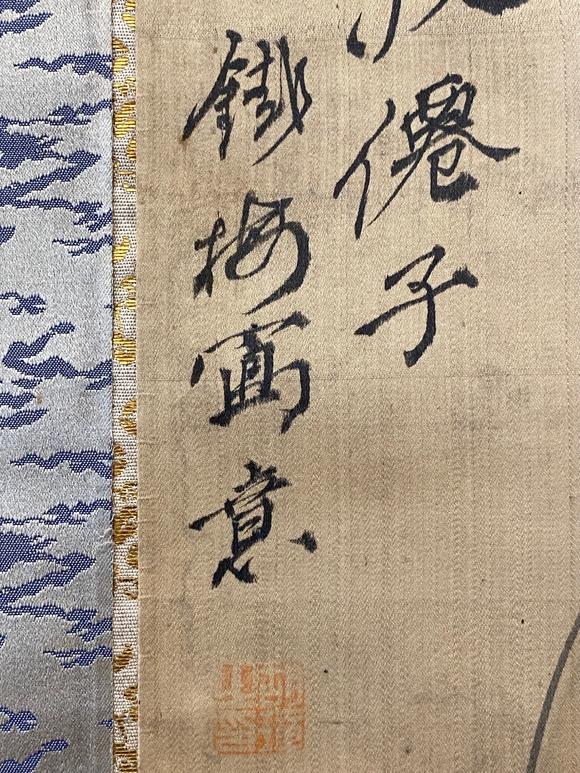 僊子
鐵梅寫意